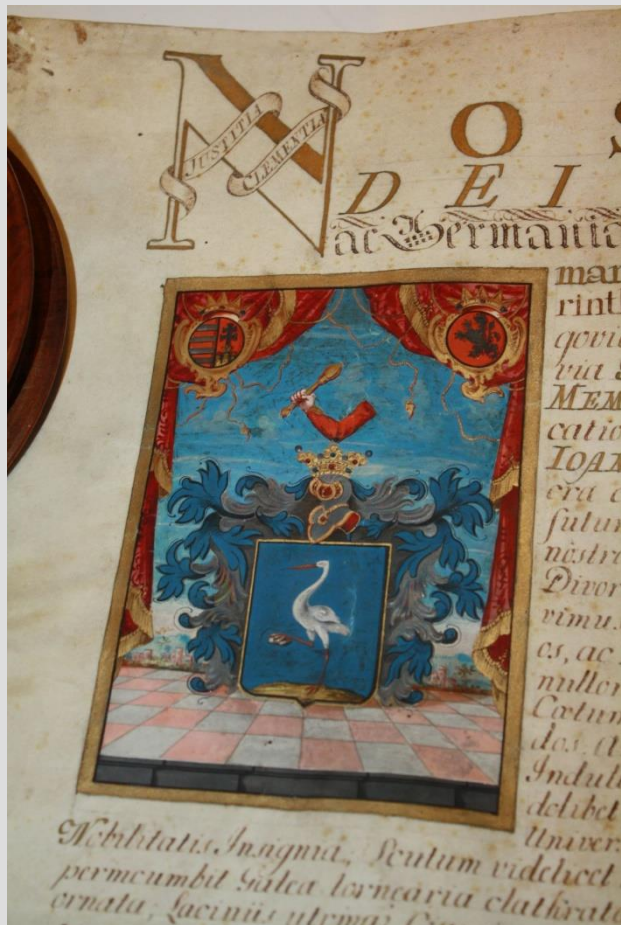 N OS
JUSTITIA
CLEMENTIA
DEI
ac Germania
mar
rint
govi
via
MEM
catio
IOAN
era
futur
nostro
Divor
vimus
os, ac
nullor
Coetum
dos, a
Indult
delibet
Univers
Nobilitatis Insignia, Scutum videlicet
permcumbit Galea tornearia clathrato
ornata, Laciniis utrinq